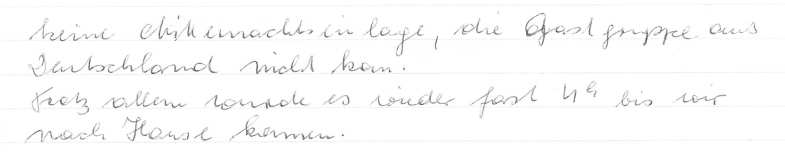 keine Mitternachtseinlage, die Gastgruppe aus
Deutschland nicht kam.
Trotz allem wurde es wieder fast 4h bis wir
nach Hause kamen.